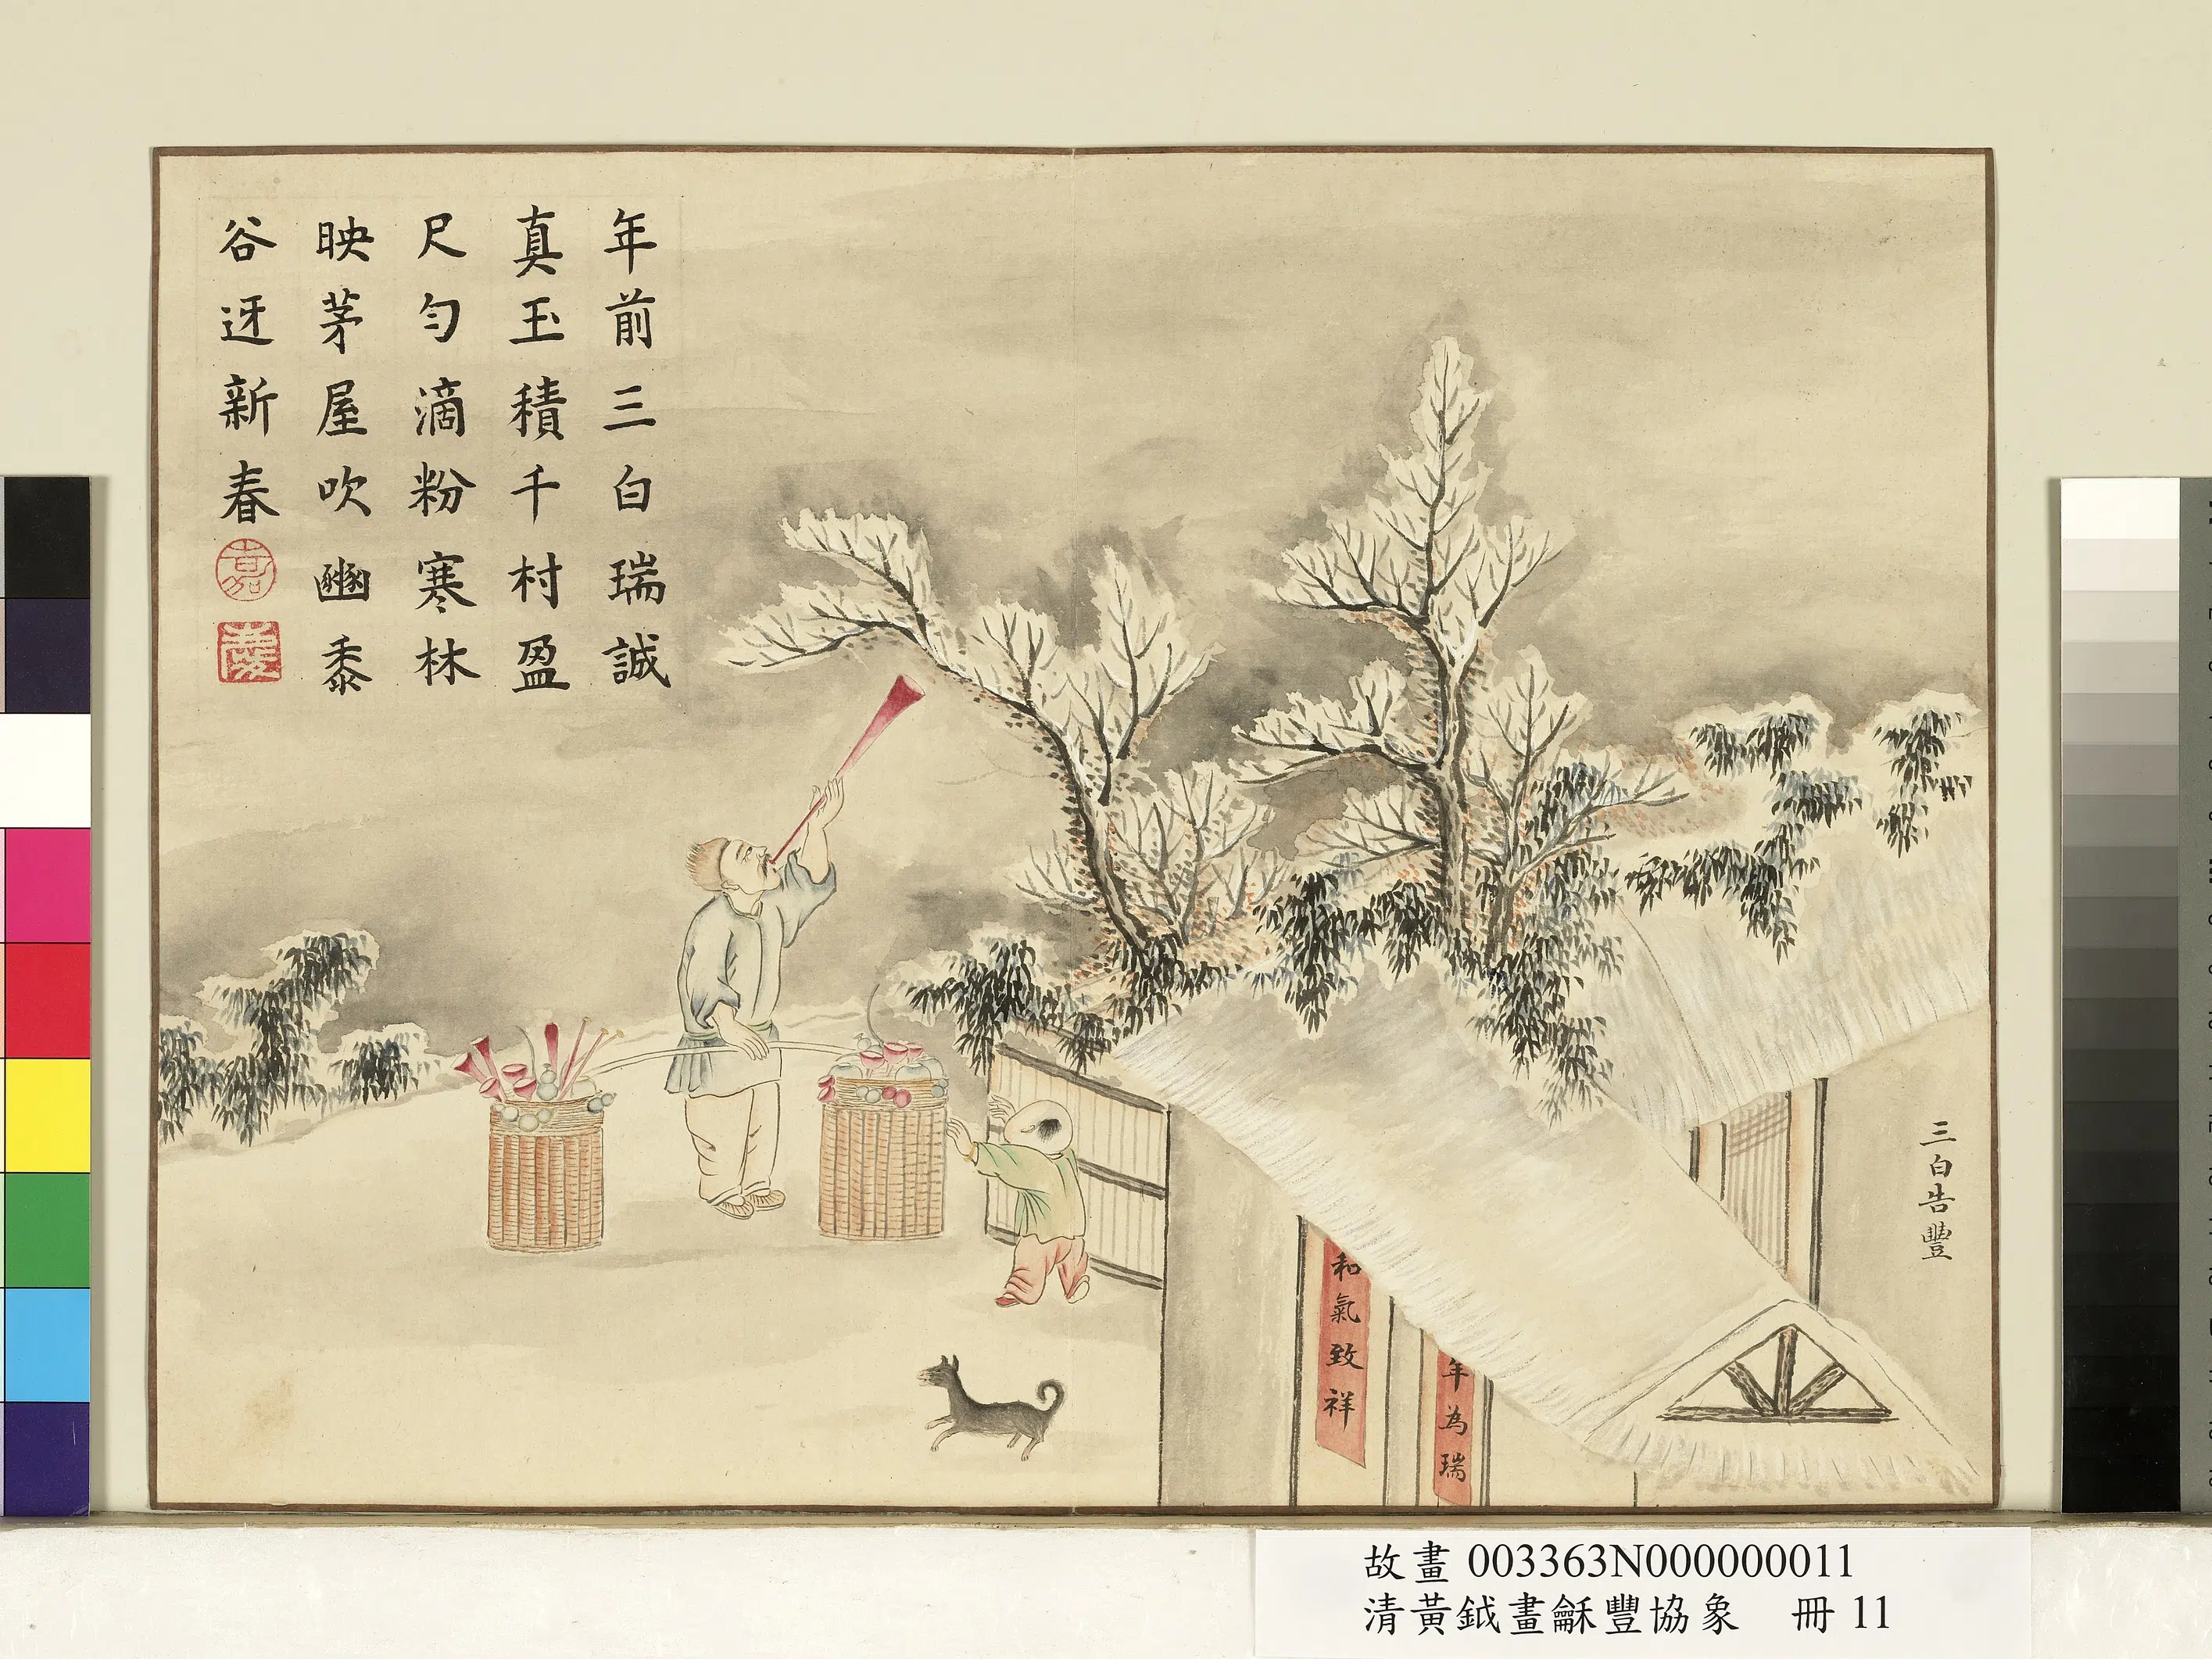 年前三白瑞誠
真玉積千村盈
尺勻滴粉寒林
映茅屋吹豳黍
谷迓新春
嘉
慶
三白告豐
和氣致祥
年為瑞
故畫 003363N000000011
清黃鉞畫龢豐協象 冊 11